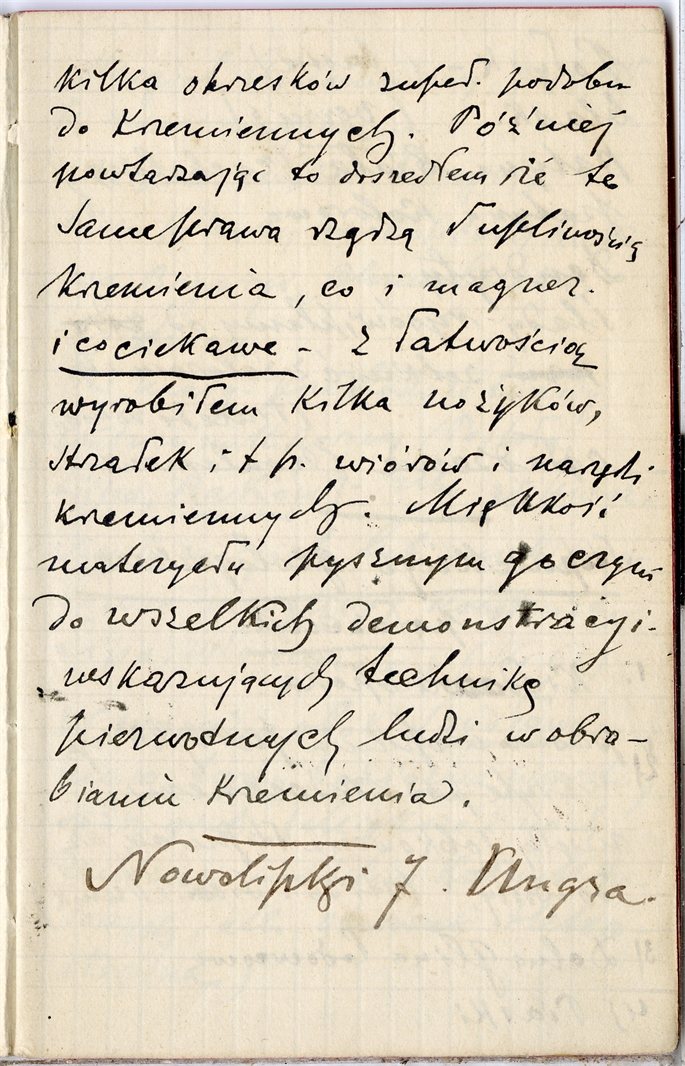 kilka okrzesków zupeł. podobn
do krzemiennych. Później
powtarzając to doszedłem iż te
same prawa rządzą łupliwością
krzemienia, co i magnez.
i co ciekawe – z łatwością
wyrobiłem kilka nożyków,
strzałek i t p. wiórów i narzędzi
krzemiennych. Miękkość
materyału pysznym go czyni
do wszelkich demonstracyi.
wskazujących technikę
pierwotnych ludzi w obra-
bianiu krzemienia.
Nowolipki 7. Ungra.